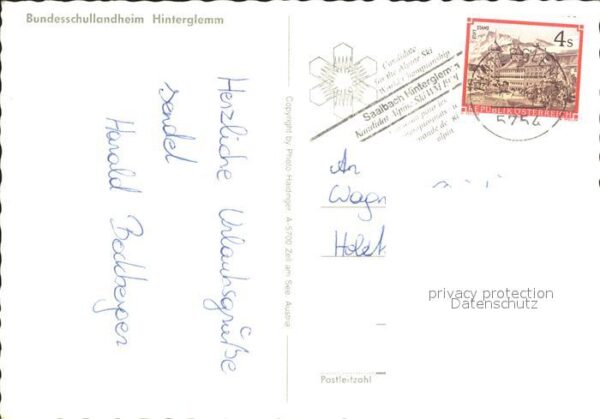 Bundesschullandheim Hinterglemm
Herzliche Urlaubsgrüße
sendet
Harald
Copyright by Photo Haidinger A-5700 Zell am See Austria
Candidate
for the Alpine Ski
World Championship
Saalbach Hinterglemm
Kandidat Alpine Ski
4s
STIFT STAMS
REPUBLIK ÖSTERREICH
5754
An
Wagn
Holst
privacy protection
Datenschutz
Postleitzahl